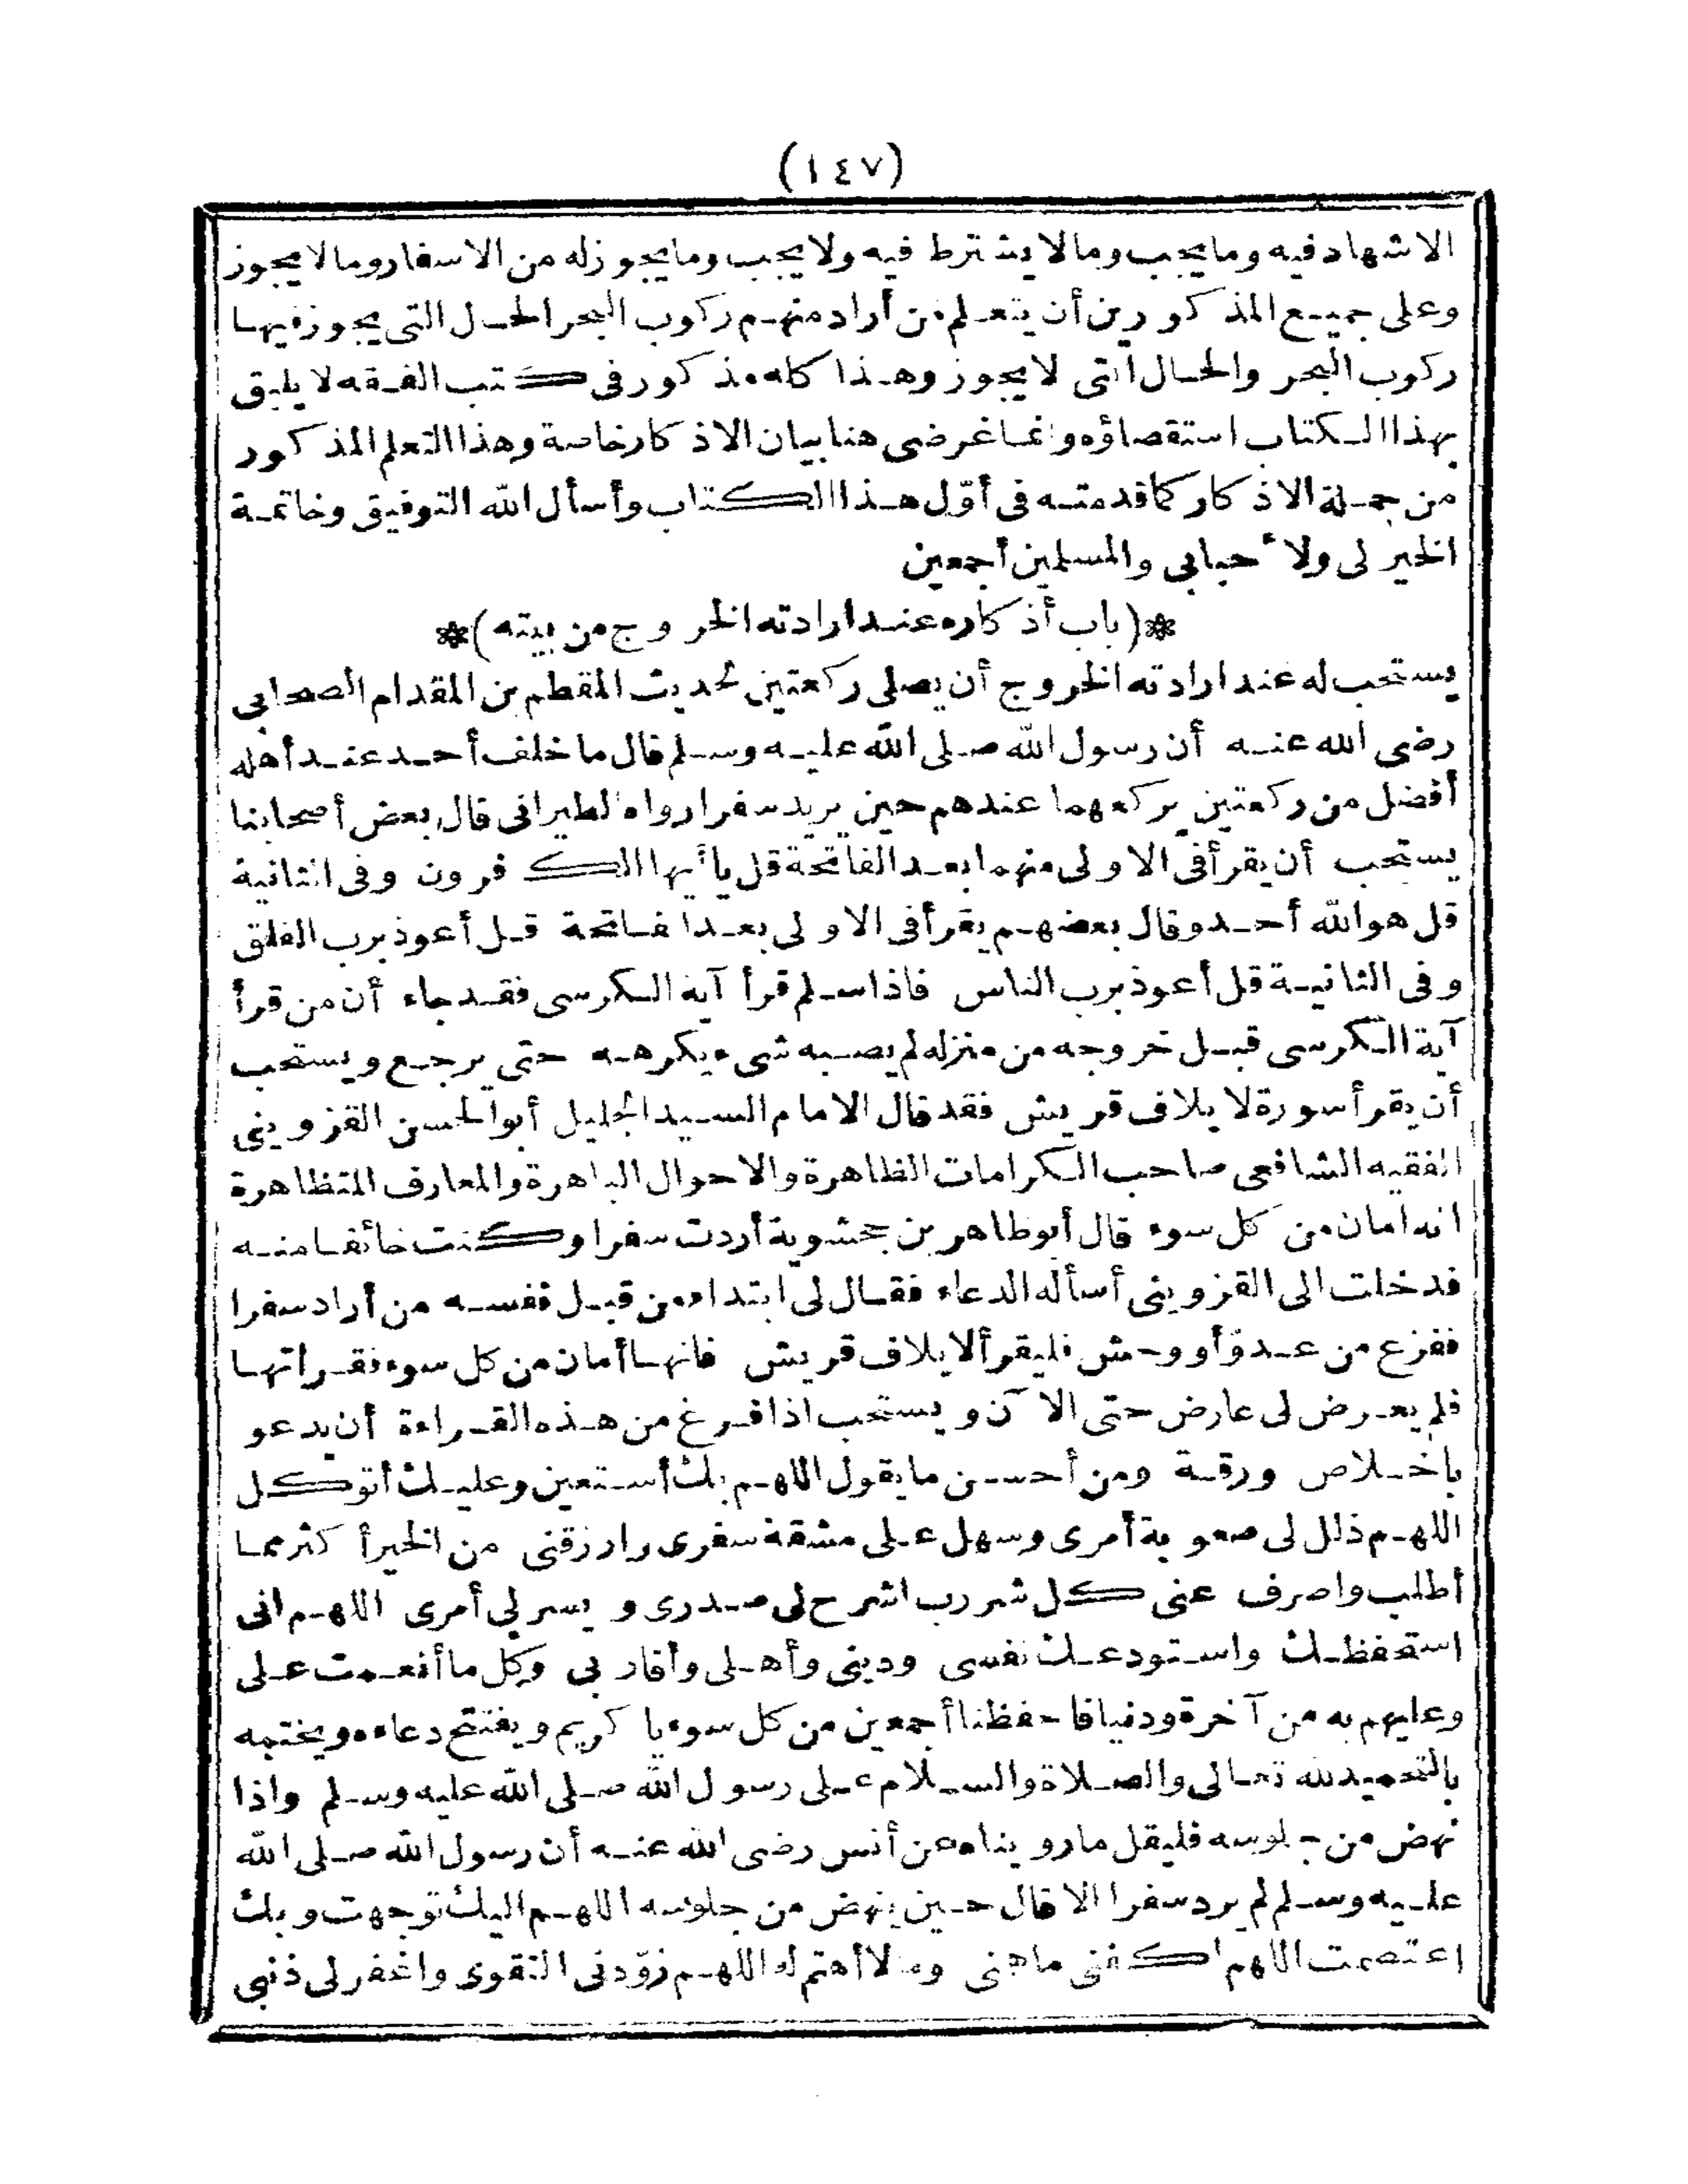 (١٤٧)
الاشهاد فيه وما يجب وما لا يشترط فيه ولا يجب وما يجوز له من الاسفار وما لا يجوز
وعلى جميع المذكورين أن يتعلم من أراد منهم ركوب البحر الحال التى يجوز فيها
ركوب البحر والحال التى لا يجوز وهذا كله مذكور فى كتب الفقه لا يليق
بهذا الكتاب استقصاؤه وانما غرضى هنا بيان الاذكار خاصة وهذا التعلم المذكور
من جملة الاذكار كما قدمته فى أوّل هذا الكتاب وأسأل الله التوفيق وخاتمة
الخير لى ولأحبابى والمسلمين أجمعين
*(باب أذكاره عند ارادته الخروج من بيته)*
يستحب له عند ارادته الخروج أن يصلى ركعتين لحديث المقطم بن المقدام الصحابى
رضى الله عنه أن رسول الله صلى الله عليه وسلم قال ما خلف أحد عند أهله
أفضل من ركعتين يركعهما عندهم حين يريد سفرا رواه الطبرانى قال بعض أصحابنا
يستحب أن يقرأ فى الاولى منهما بعد الفاتحة قل يا أيها الكافرون وفى الثانية
قل هو الله أحد وقال بعضهم يقرأ فى الاولى بعد الفاتحة قل أعوذ برب الفلق
وفى الثانية قل أعوذ برب الناس فاذا سلم قرأ آية الكرسى فقد جاء أن من قرأ
آية الكرسى قبل خروجه من منزله لم يصبه شىء يكرهه حتى يرجع ويستحب
أن يقرأ سورة لايلاف قريش فقد قال الامام السيد الجليل أبو الحسن القزوينى
الفقيه الشافعى صاحب الكرامات الظاهرة والاحوال الباهرة والمعارف المتظاهرة
انه أمان من كل سوء قال أبو طاهر بن جحشوية أردت سفرا وكنت خائفا منه
فدخلت الى القزوينى أسأله الدعاء فقال لى ابتداء من قبل نفسه من أراد سفرا
ففزع من عدوّ أو وحش فليقرأ لايلاف قريش فانها أمان من كل سوء فقرأتها
فلم يعرض لى عارض حتى الآن ويستحب اذا فرغ من هذه القراءة أن يدعو
باخلاص ورقة ومن أحسن ما يقول اللهم بك أستعين وعليك أتوكل
اللهم ذلل لى صعوبة أمرى وسهل على مشقة سفرى وارزقنى من الخير أكثر مما
أطلب واصرف عنى كل شر رب اشرح لى صدرى ويسر لى أمرى اللهم انى
استحفظك واستودعك نفسى ودينى وأهلى وأقاربى وكل ما أنعمت على
وعليهم به من آخرة ودنيا فاحفظنا أجمعين من كل سوء يا كريم ويفتتح دعاءه ويختمه
بالتحميد لله تعالى والصلاة والسلام على رسول الله صلى الله عليه وسلم واذا
نهض من جلوسه فليقل ما رويناه عن أنس رضى الله عنه أن رسول الله صلى الله
عليه وسلم لم يرد سفرا الا قال حين ينهض من جلوسه اللهم اليك توجهت وبك
اعتصمت اللهم اكفنى ما همنى وما لا أهتم له اللهم زوّدنى التقوى واغفر لى ذنبى